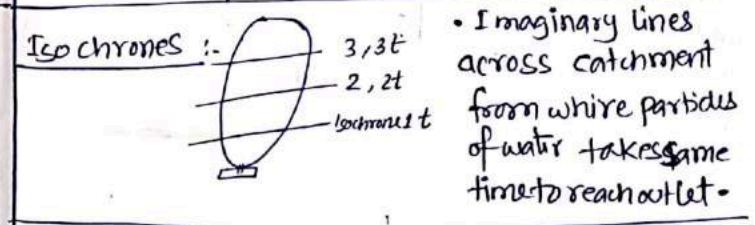 Isochrones :-
3, 3t
2, 2t
Isochrone 1 t
• Imaginary lines
across catchment
from whire particles
of watir takes same
time to reach outlet.